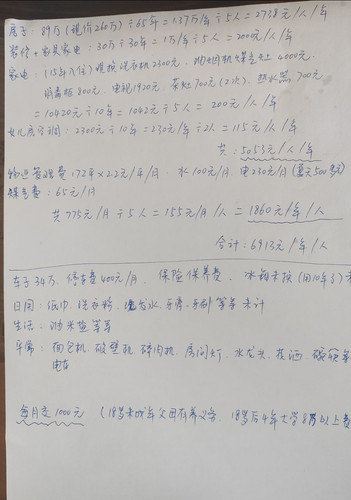 房子：89万(现价260万)÷65年＝1.37万/年÷5人＝2738元/人/年
装修＋家具家电：30万÷30年＝1万/年÷5人＝200元/人/年
家电：(15年入住)更换洗衣机2300元、抽油烟机煤气灶4000元、
消毒柜800元、电视1920元、茶处700元(2次)、热水器700元
＝10420元÷10年＝1042元÷5人＝200元/人/年
女儿房空调：2300元÷10年＝230元/年÷2人＝115元/人/年
共：5053元/人/年
物业管理费：172平×2.2元/平/月、水100元/月、电230元/月(夏天500多元)
煤气费：65元/月
共775元/月÷5人＝155元/月/人＝1860元/年/人
合计：6913元/年/人
车子34万、停车费400元/月、保险保养费、冰箱未换(用10年多)未
日用：纸巾、洗衣粉、洗发水、牙膏、牙刷等等未计
生活：油米盐等等
平常：面包机、破壁机、碎肉机、房间灯、水龙头、花洒、碗筷等
电车
每月交1000元 (18岁未成年父母有养义务，18岁后4年大学8万以上费